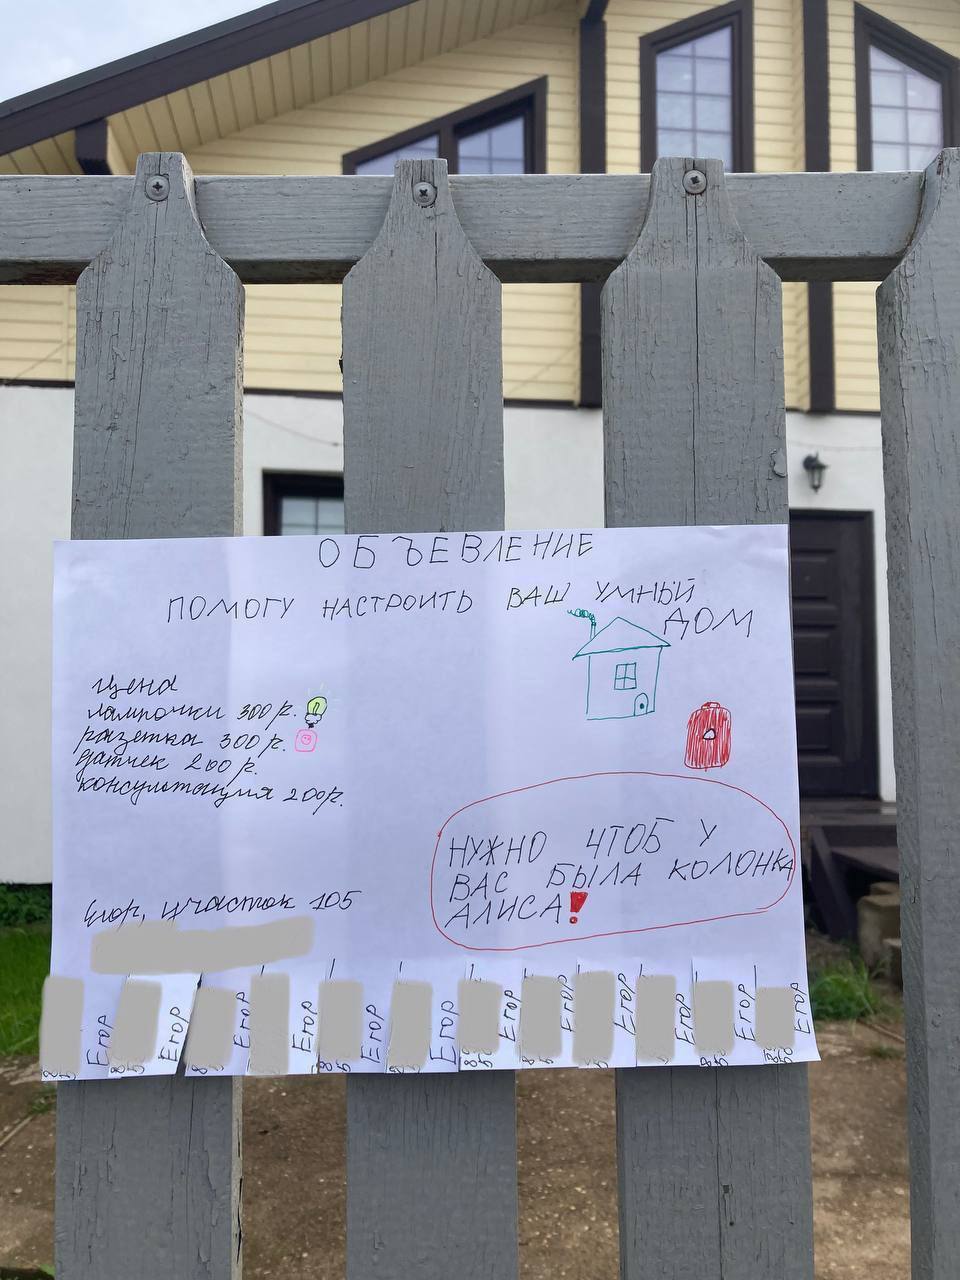 ОБЪЕВЛЕНИЕ
ПОМОГУ НАСТРОИТЬ ВАШ УМНЫЙ
ДОМ
Цена
лампочки 300 р.
разетка 300 р.
датчек 200 р.
консультация 200р.
НУЖНО ЧТОБ У
ВАС БЫЛА КОЛОНКА
АЛИСА!
Егор, участок 105
Егор
Егор
Егор
Егор
Егор
Егор
Егор
Егор
Егор
Егор
Егор
Егор